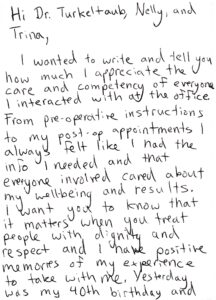 Hi Dr. Turkeltaub, Nelly, and
Trina,
I wanted to write and tell you
how much I appreciate the
care and competency of everyone
I interacted with at the office.
From pre-operative instructions
to my post-op appointments I
always felt like I had the
info I needed and that
everyone involved cared about
my wellbeing and results.
I want you to know that
it matters when you treat
people with dignity and
respect and I have positive
memories of my experience
to take with me. Yesterday
was my 40th birthday and